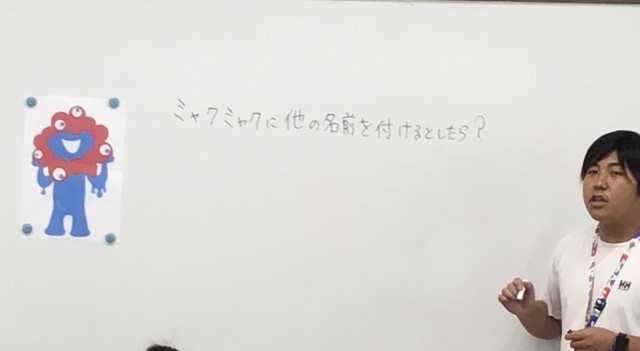 ミャクミャクに他の名前を付けるとしたら?
HH